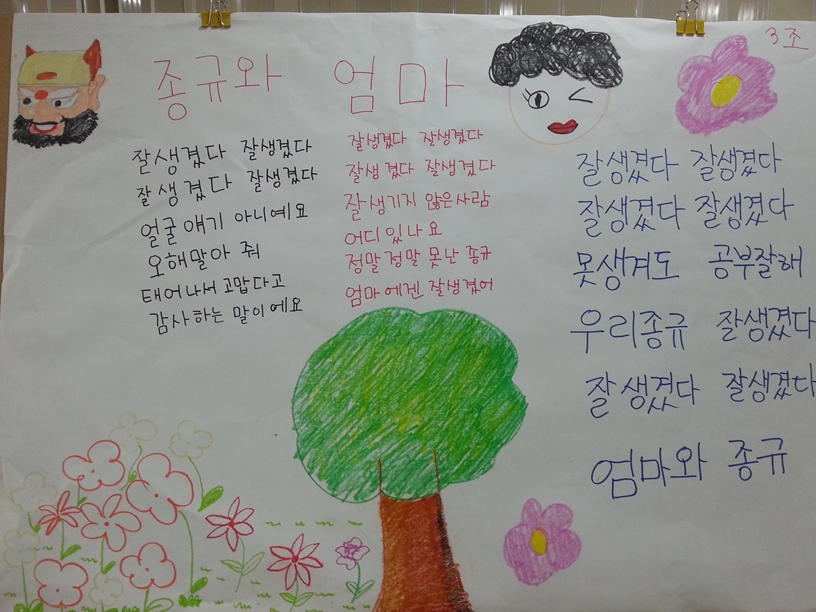 3조
종규와 엄마
잘생겼다 잘생겼다
잘생겼다 잘생겼다
얼굴 얘기 아니예요
오해말아 줘
태어나서 고맙다고
감사하는 말이예요
잘생겼다 잘생겼다
잘생겼다 잘생겼다
잘생기지 않은사람
어디있나요
정말정말 못난 종규
엄마에겐 잘생겼어
잘생겼다 잘생겼다
잘생겼다 잘생겼다
못생겨도 공부잘해
우리종규 잘생겼다
잘생겼다 잘생겼다
엄마와 종규